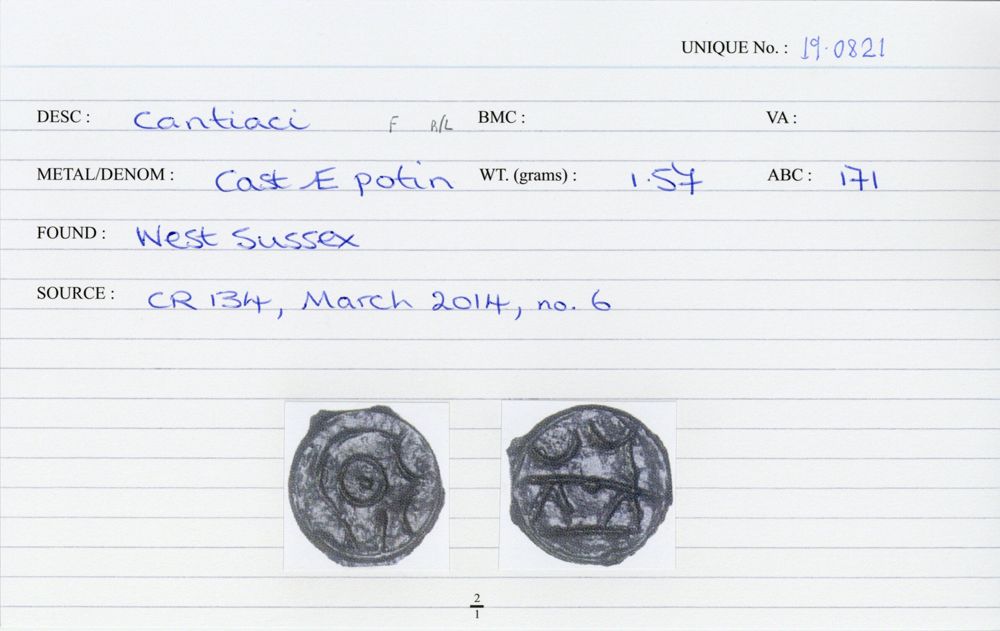 UNIQUE No. : 19.0821
DESC : Cantiaci F R/L BMC : VA :
METAL/DENOM : Cast Æ potin WT. (grams) : 1.57 ABC : 171
FOUND : West Sussex
SOURCE : CR 134, March 2014, no. 6
2
1